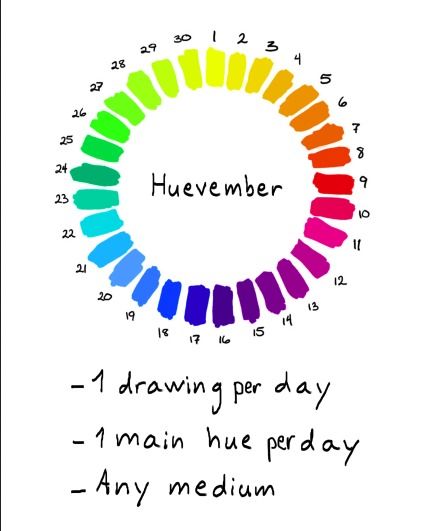 1
2
3
4
5
6
7
8
9
10
11
12
13
14
15
16
17
18
19
20
21
22
23
24
25
26
27
28
29
30
Huevember
- 1 drawing per day
- 1 main hue per day
- Any medium